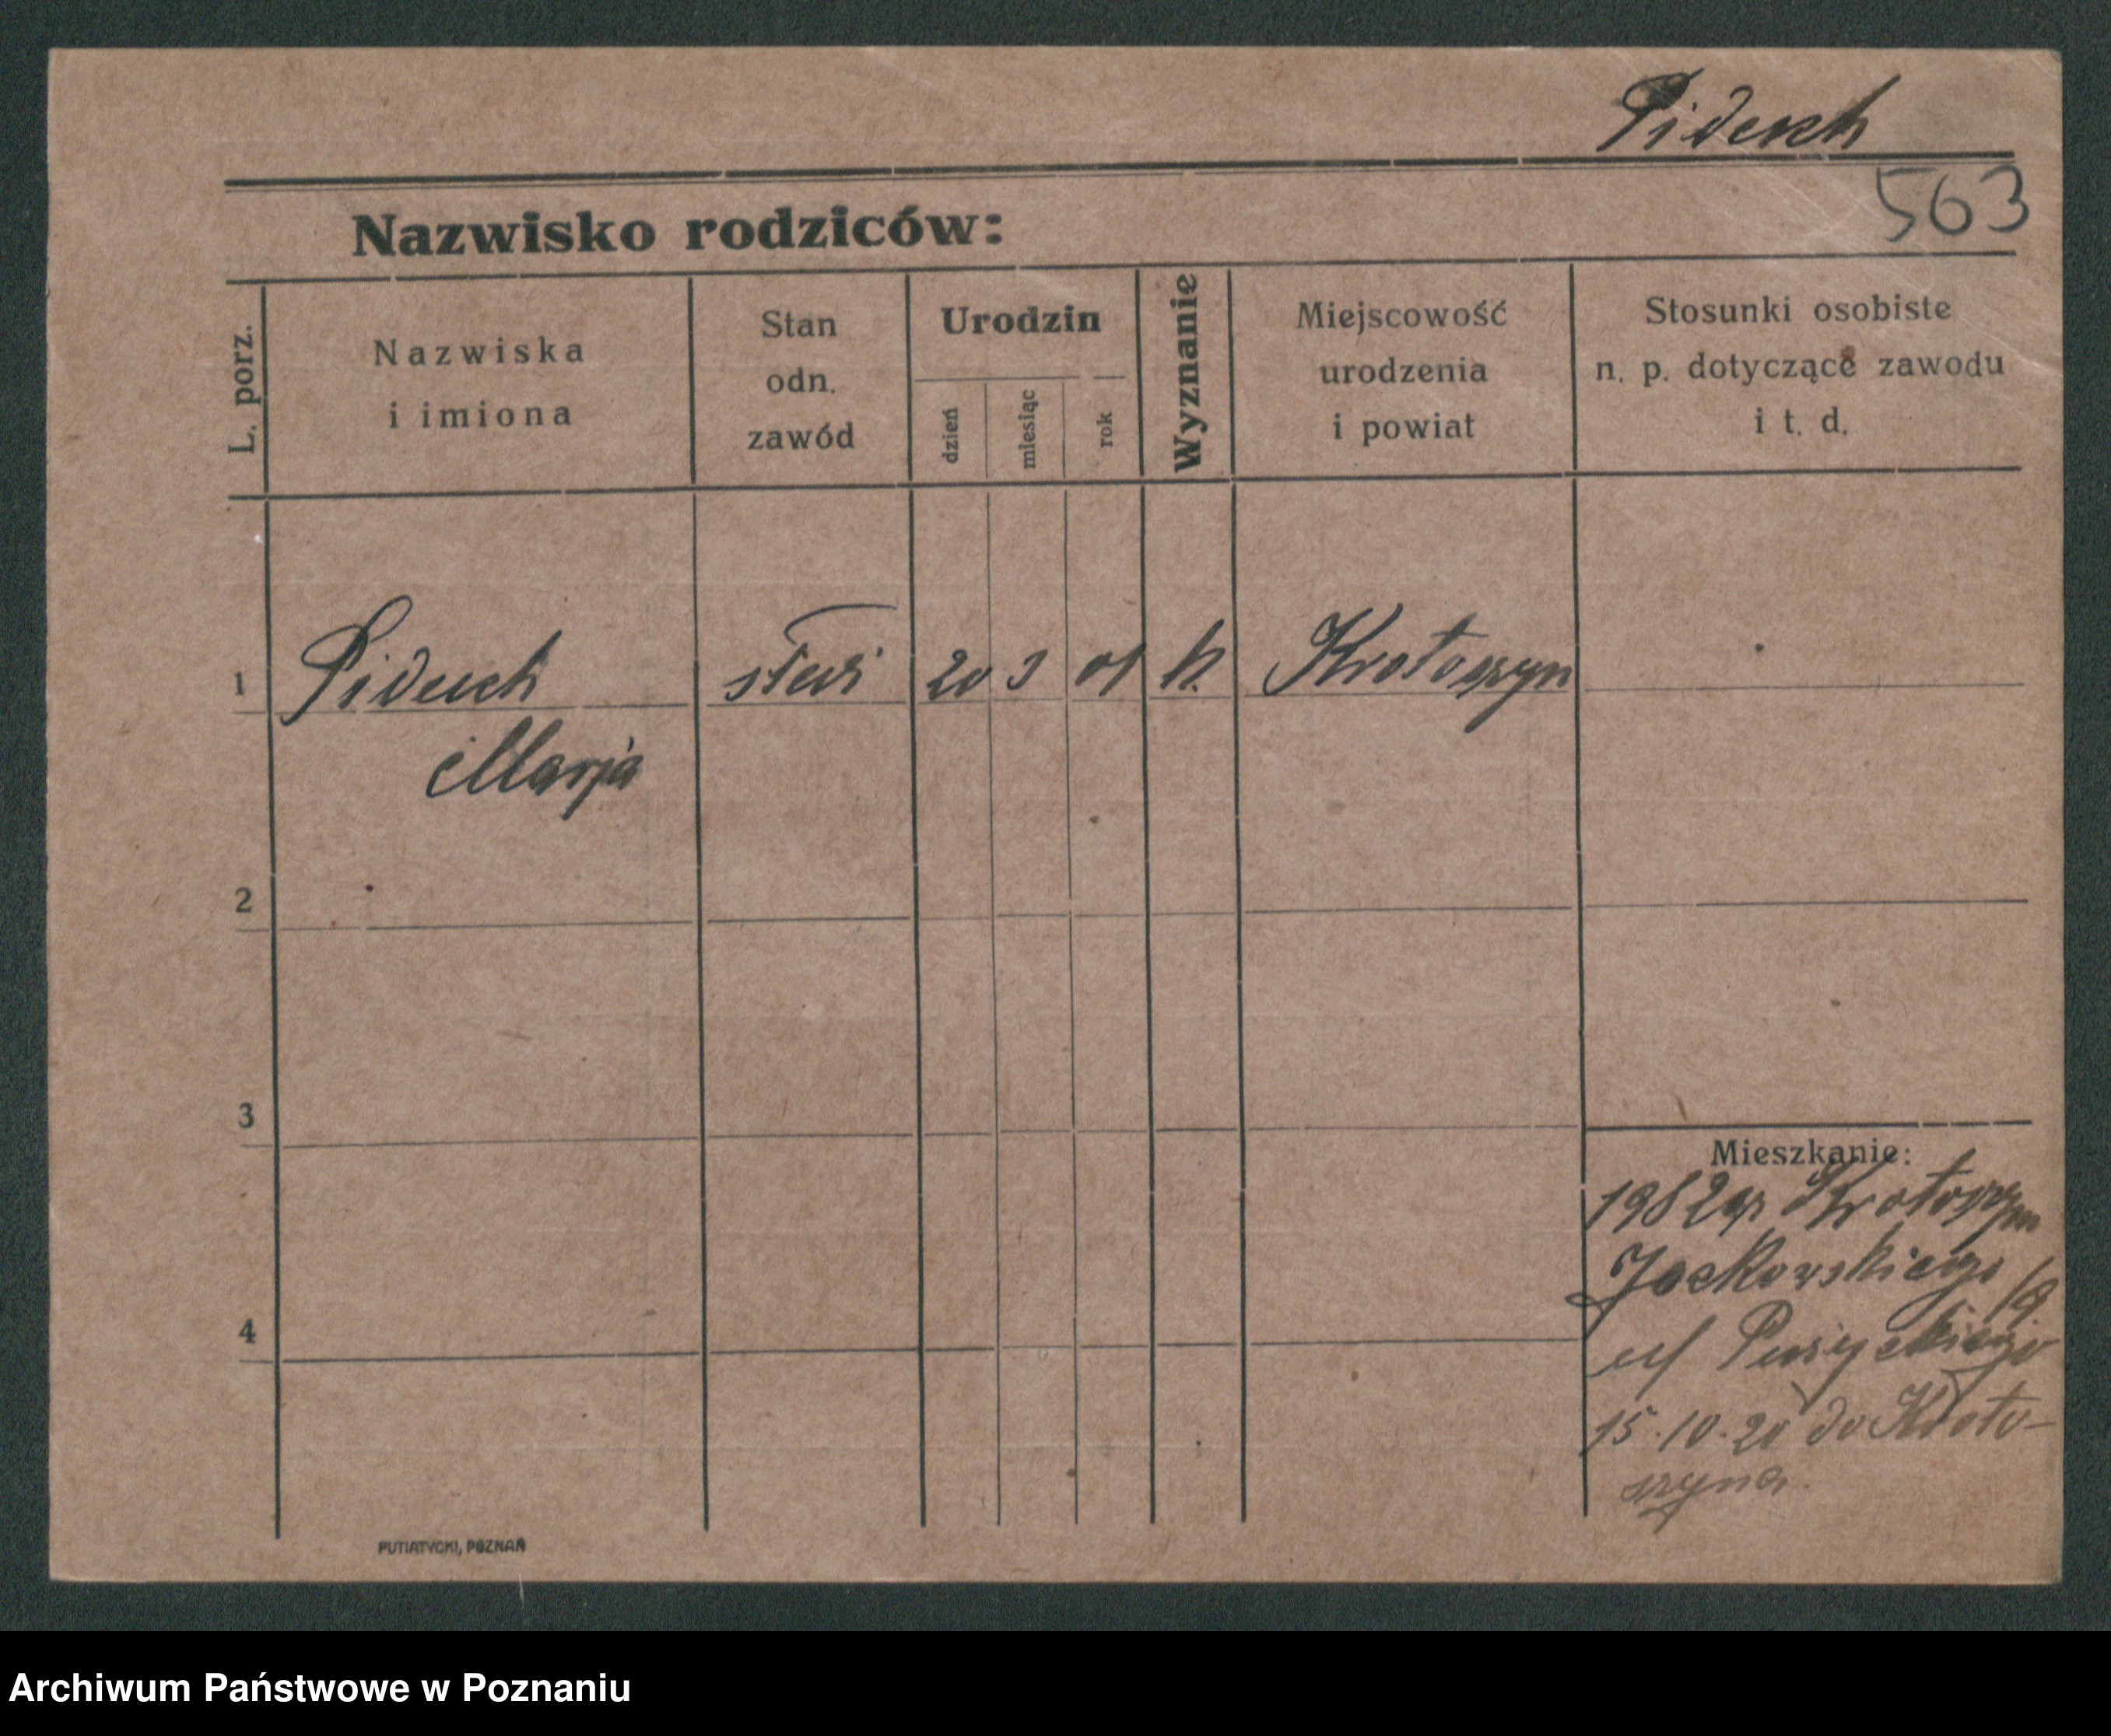 Piduch
563
Nazwisko rodziców:
L. porz.
Nazwiska
i imiona
Stan
odn.
zawód
Urodzin
dzień
miesiąc
rok
Wyznanie
Miejscowość
urodzenia
i powiat
Stosunki osobiste
n. p. dotyczące zawodu
i t. d.
1 Piduch 20 3 01 k. Krotoszyn
Marja
2
3
4
Mieszkanie:
Krotoszyn
Jackowskiego 19
15.10.20 do Kroto-
szyna.
PUTIATYCKI, POZNAŃ
Archiwum Państwowe w Poznaniu